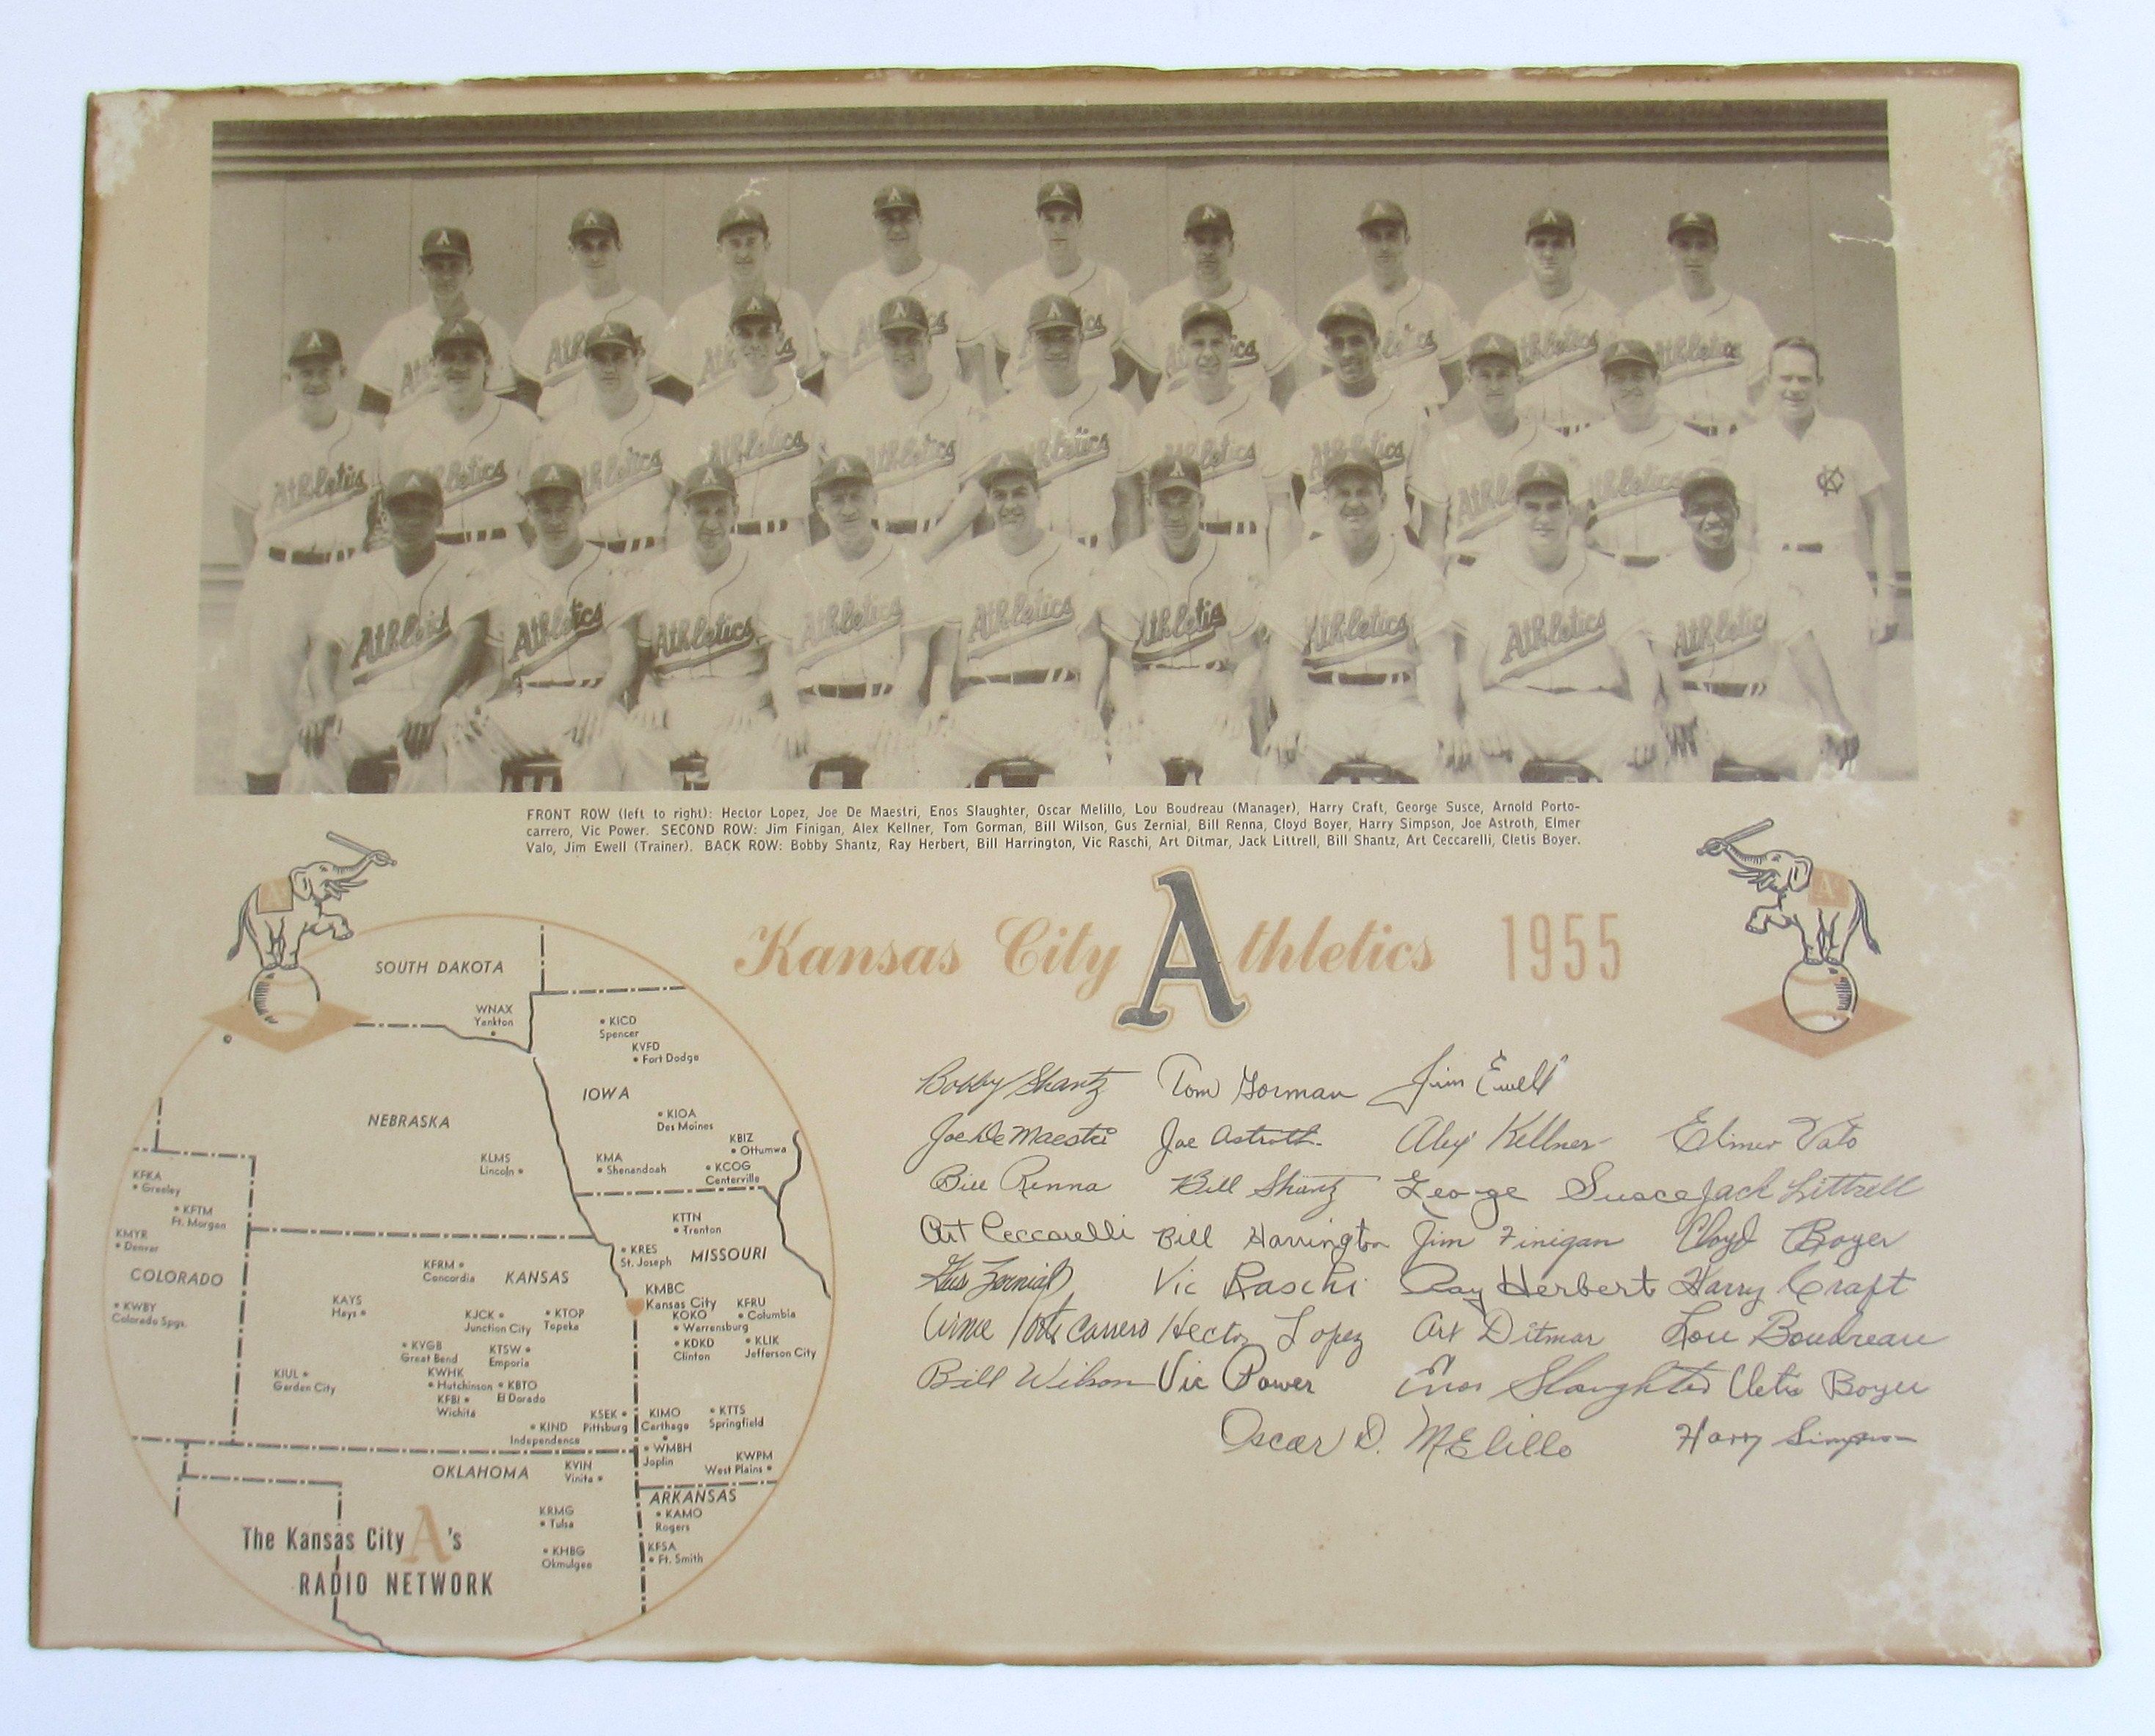 FRONT ROW (left to right): Hector Lopez, Joe De Maestri, Enos Slaughter, Oscar Melillo, Lou Boudreau (Manager), Harry Craft, George Susce, Arnold Porto-
carrero, Vic Power. SECOND ROW: Jim Finigan, Alex Kellner, Tom Gorman, Bill Wilson, Gus Zernial, Bill Renna, Cloyd Boyer, Harry Simpson, Joe Astroth, Elmer
Valo, Jim Ewell (Trainer). BACK ROW: Bobby Shantz, Ray Herbert, Bill Harrington, Vic Raschi, Art Ditmar, Jack Littrell, Bill Shantz, Art Ceccarelli, Cletis Boyer.
Kansas City Athletics 1955
SOUTH DAKOTA
WNAX
Yankton
KICD
Spencer
KVFD
Fort Dodge
IOWA
NEBRASKA
KIOA
Des Moines
KBIZ
Ottumwa
KLMS
Lincoln
KMA
Shenandoah
KCOG
Centerville
KFKA
Greeley
KFTM
Ft. Morgan
KMYR
Denver
COLORADO
KWBY
Colorado Spgs.
KTTN
Trenton
KRES
St. Joseph
MISSOURI
KFRM
Concordia
KANSAS
KMBC
Kansas City
KAYS
Hays
KJCK
Junction City
KTOP
Topeka
KOKO
Warrensburg
KFRU
Columbia
KDKD
Clinton
KLIK
Jefferson City
KVGB
Great Bend
KTSW
Emporia
KIUL
Garden City
KWHK
Hutchinson
KBTO
El Dorado
KFBI
Wichita
KSEK
Pittsburg
KIMO
Carthage
KTTS
Springfield
KIND
Independence
WMBH
Joplin
KWPM
West Plains
OKLAHOMA
KVIN
Vinita
ARKANSAS
KAMO
Rogers
KRMG
Tulsa
KHBG
Okmulgee
KFSA
Ft. Smith
The Kansas City A's
RADIO NETWORK
Bobby Shantz Tom Gorman Jim Ewell
Joe De Maestri Joe Astroth Alex Kellner Elmer Valo
Bill Renna Bill Shantz George Susce Jack Littrell
Art Ceccarelli Bill Harrington Jim Finigan Cloyd Boyer
Gus Zernial Vic Raschi Ray Herbert Harry Craft
Arnie Portocarrero Hector Lopez Art Ditmar Lou Boudreau
Bill Wilson Vic Power Enos Slaughter Cletis Boyer
Oscar D. Melillo Harry Simpson